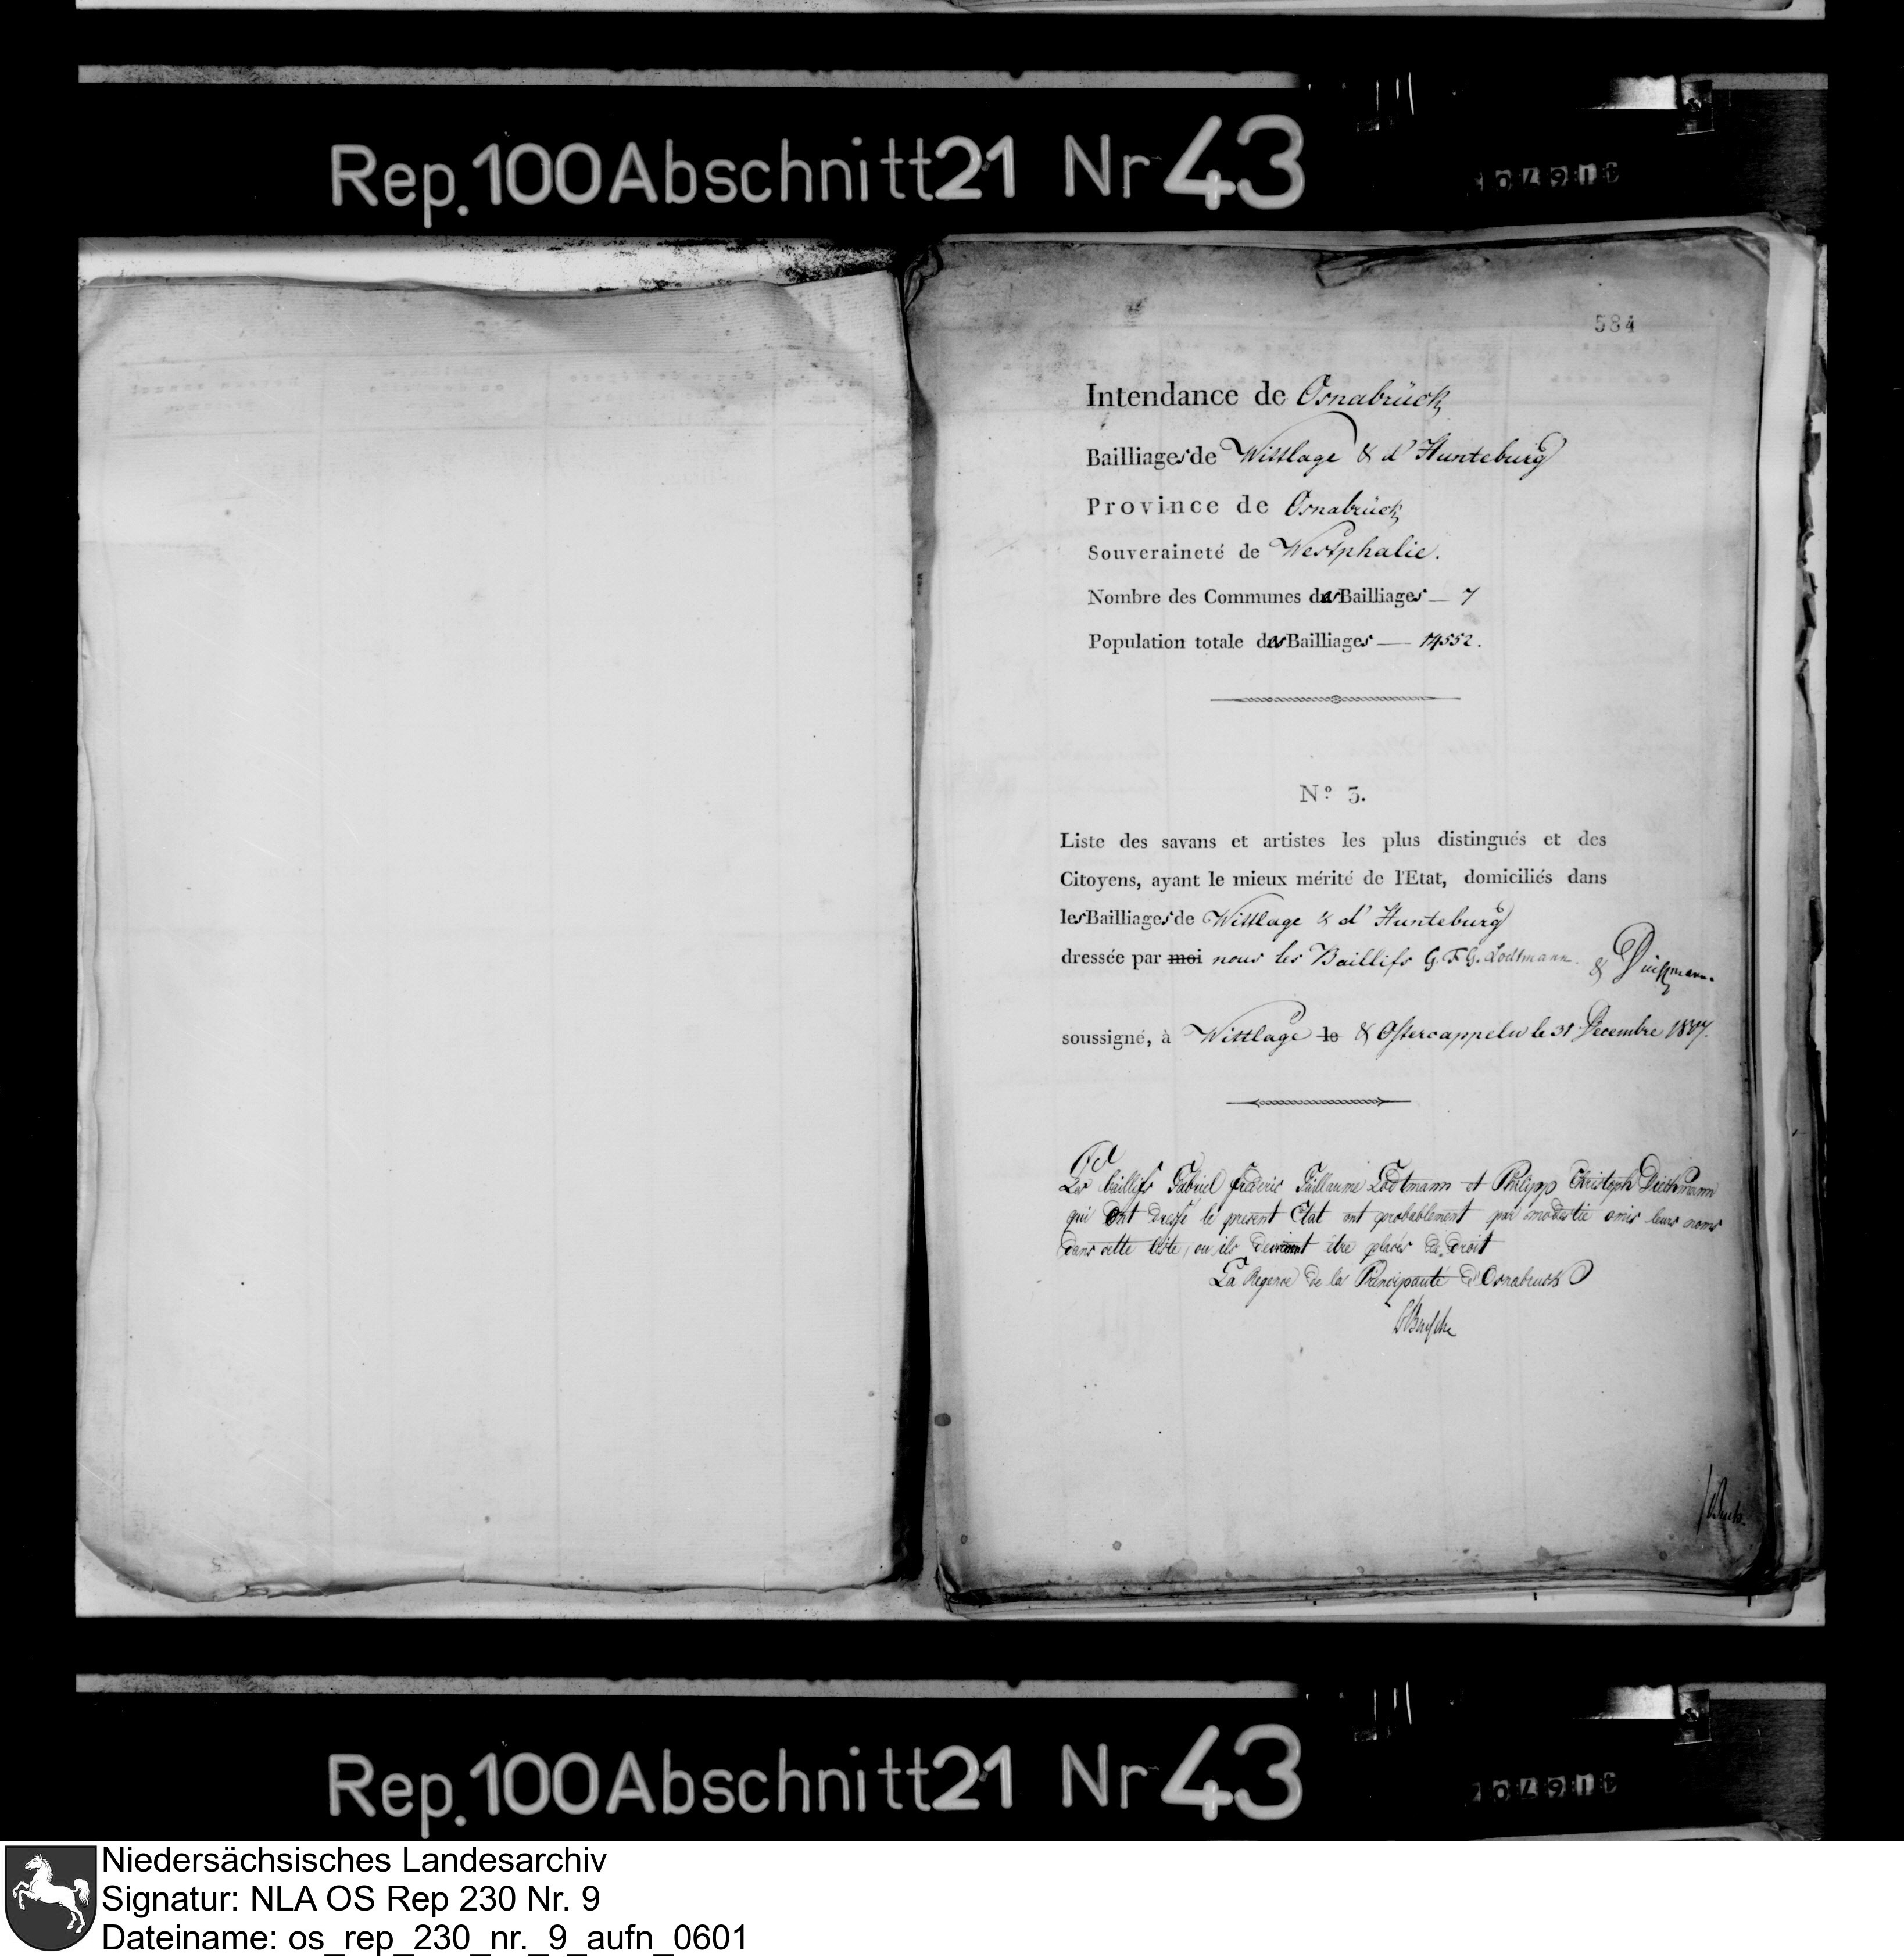 Rep. 100 Abschnitt 21 Nr 43
584
Intendance de Osnabrück
Bailliages de Wittlage & d'Hunteburg
Province de Osnabrück
Souveraineté de Westphalie.
Nombre des Communes des Bailliages — 7
Population totale des Bailliages — 14552.
Nº 3.
Liste des savans et artistes les plus distingués et des
Citoyens, ayant le mieux mérité de l'Etat, domiciliés dans
les Bailliages de Wittlage & d'Hunteburg
dressée par moi nous les Baillifs G. F. G. Lodtmann &
soussigné, à Wittlage le & Ostercappeln le 31 Decembre 1807.
Les baillifs Gabriel frederic Guillaume Lodtmann et Philipp Christoph
qui ont dressé le present Etat ont probablement par modestie omis leurs noms
dans cette liste, ou ils devroient être placés de droit
La Regence de la Principauté d'Osnabruck
Rep. 100 Abschnitt 21 Nr 43
Niedersächsisches Landesarchiv
Signatur: NLA OS Rep 230 Nr. 9
Dateiname: os_rep_230_nr._9_aufn_0601